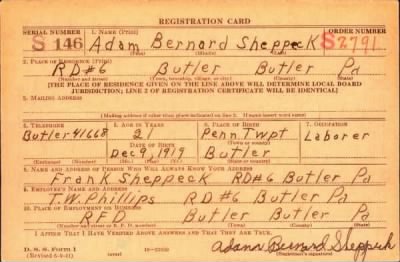 REGISTRATION CARD
SERIAL NUMBER 1. NAME (Print) ORDER NUMBER
S 146 Adam Bernard Sheppeck S2791
(First) (Middle) (Last)
2. PLACE OF RESIDENCE (Print)
RD#6 Butler Butler Pa
(Number and street) (Town, township, village, or city) (County) (State)
[THE PLACE OF RESIDENCE GIVEN ON THE LINE ABOVE WILL DETERMINE LOCAL BOARD
JURISDICTION; LINE 2 OF REGISTRATION CERTIFICATE WILL BE IDENTICAL]
3. MAILING ADDRESS
[Mailing address if other than place indicated on line 2. If same insert word same]
4. TELEPHONE 5. AGE IN YEARS 6. PLACE OF BIRTH 7. OCCUPATION
Butler 41668 21 Penn. Twpt Laborer
DATE OF BIRTH (Town or county)
Dec 9, 1919 Butler
(Exchange) (Number) (Mo.) (Day) (Yr.) (State or country)
8. NAME AND ADDRESS OF PERSON WHO WILL ALWAYS KNOW YOUR ADDRESS
Frank Sheppeck RD#6 Butler Pa
9. EMPLOYER'S NAME AND ADDRESS
T.W. Phillips RD#6 Butler Pa
10. PLACE OF EMPLOYMENT OR BUSINESS
RFD Butler Butler Pa
(Number and street or R. F. D. number) (Town) (County) (State)
I AFFIRM THAT I HAVE VERIFIED ABOVE ANSWERS AND THAT THEY ARE TRUE.
D. S. S. FORM 1 Adam Bernard Sheppeck
(Revised 6-9-41) (over) (Registrant's signature)